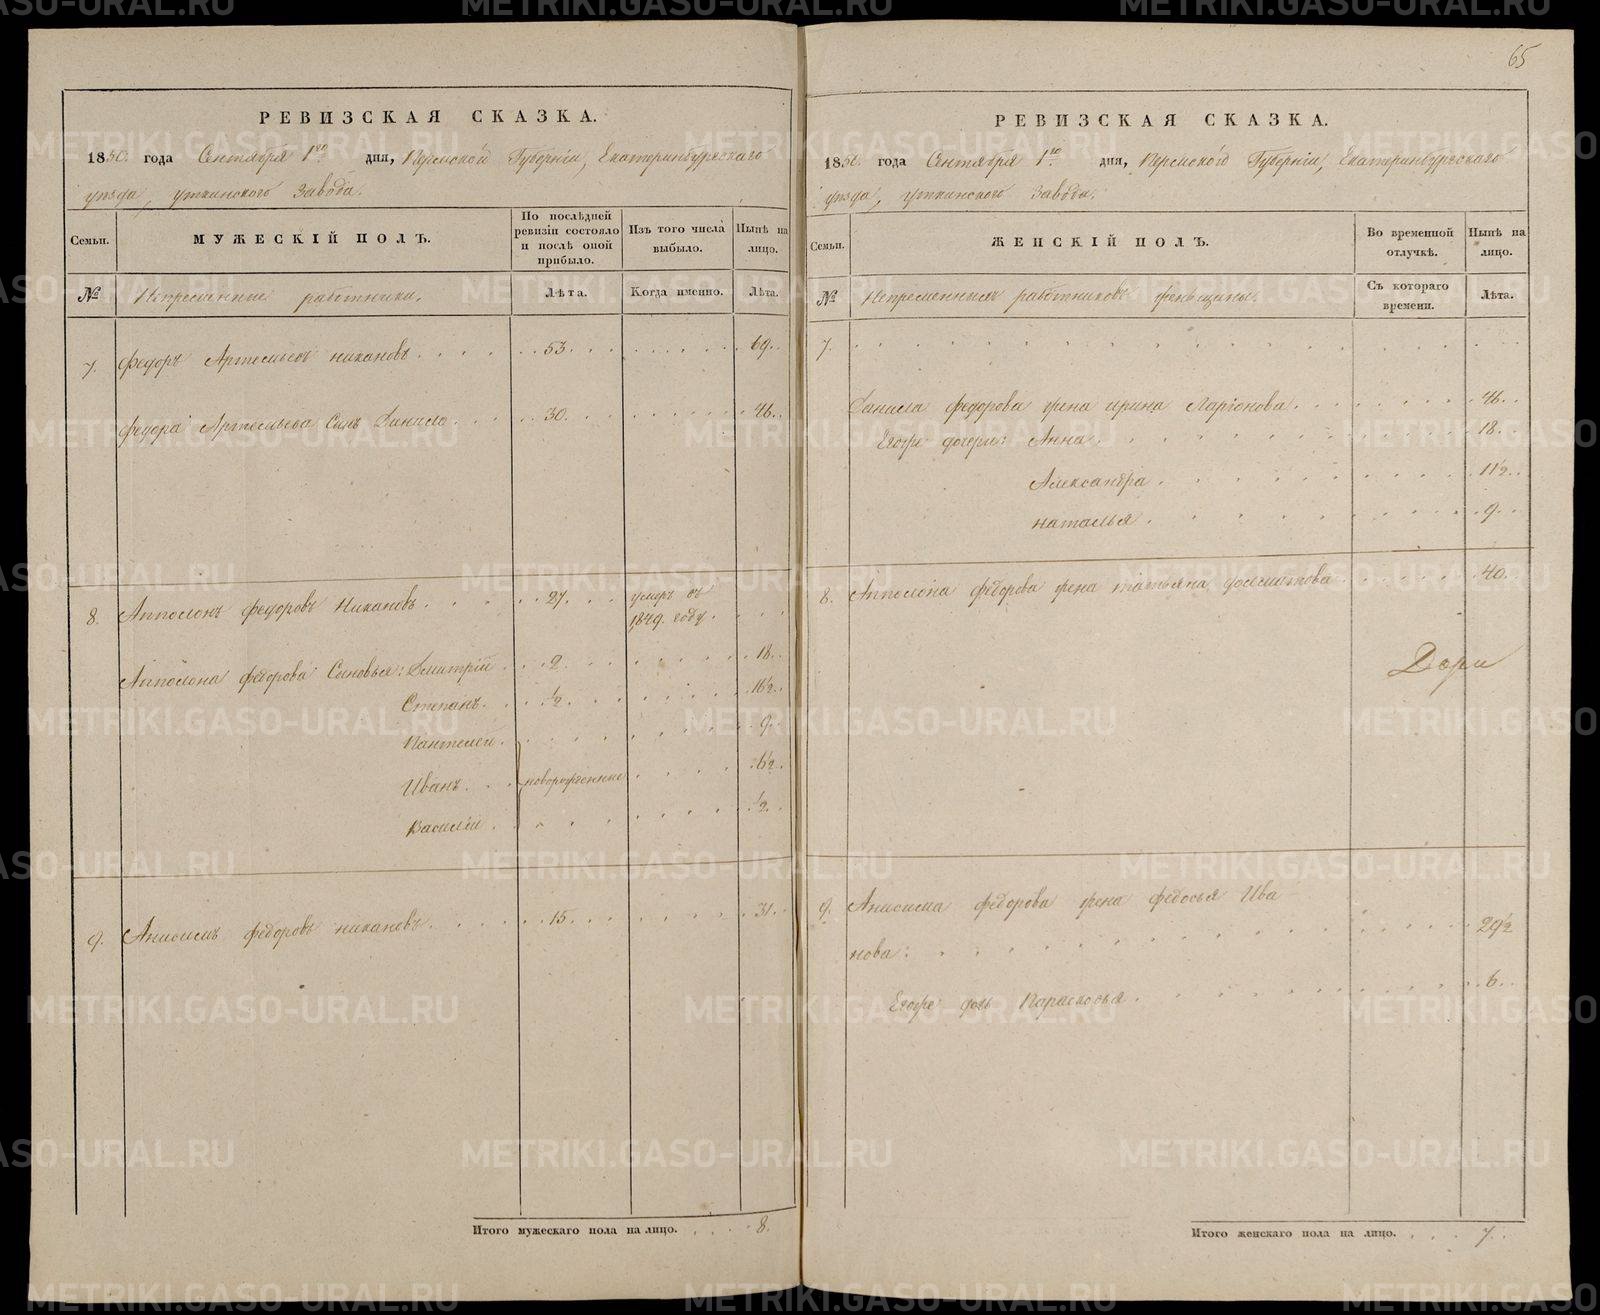 65
РЕВИЗСКАЯ СКАЗКА.
1850. года Сентября 1го дня, Пермской Губернiи, Екатеринбургскаго
уезда, Уткинского Завода.
Семьи.
МУЖЕСКIЙ ПОЛЪ.
По послѣдней ревизiи состояло и послѣ оной прибыло.
Изъ того числа выбыло.
Нынѣ на лицо.
№
Непременные работники.
Лѣта.
Когда именно.
Лѣта.
7. Федоръ Артемьевъ Никановъ 53. 69.
Федора Артемьева Сынъ Данило 30. 46.
8. Апполонъ Федоровъ Никановъ 27. умеръ въ 1849. году.
Апполона Федорова Сыновья: Дмитрiй 2. 18.
Степанъ. ½. 16½.
Пантелей. 9.
Иванъ. новорожденные 6½.
Василiй. ½.
9. Анисимъ Федоровъ Никановъ. 15. 31.
Итого мужескаго пола на лицо. 8.
РЕВИЗСКАЯ СКАЗКА.
1850. года Сентября 1го дня, Пермской Губернiи, Екатеринбургскаго
уезда, Уткинского Завода.
Семьи.
ЖЕНСКIЙ ПОЛЪ.
Во временной отлучкѣ.
Нынѣ на лицо.
№
Непременныхъ работниковъ женщины.
Съ котораго времени.
Лѣта.
7.
Данила Федорова жена Ирина Ларiонова. 46.
Егоже дочери: Анна. 18.
Александра. 11½.
Наталья. 9.
8. Апполона Федорова жена Татьяна 40.
9. Анисима Федорова жена Федосья Ива
нова: 29½
Егоже дочь Парасковья. 6.
Итого женскаго пола на лицо. 7.
METRIKI.GASO-URAL.RU